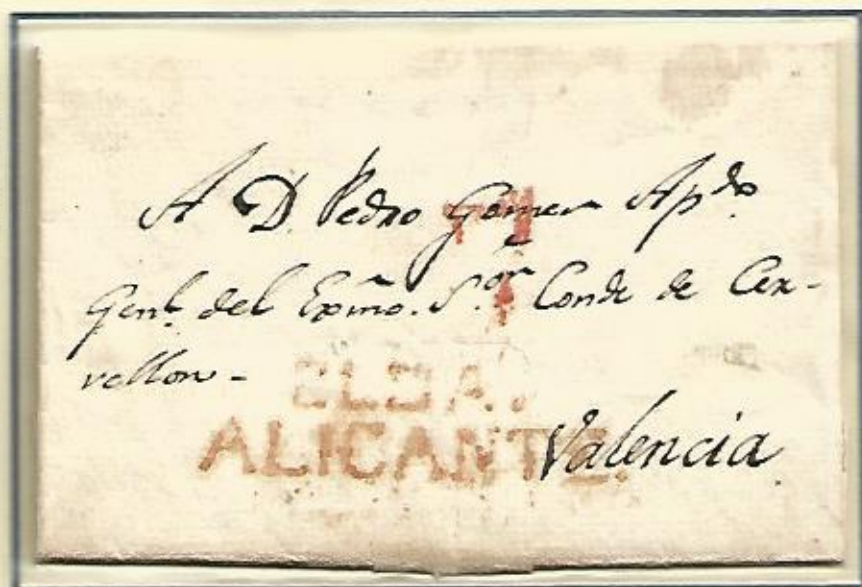 A D. Pedro Gomez Ap.do
Genl. del Exmo. S.or Conde de Cer-
vellon -
ELDA.
ALICANTE.
Valencia